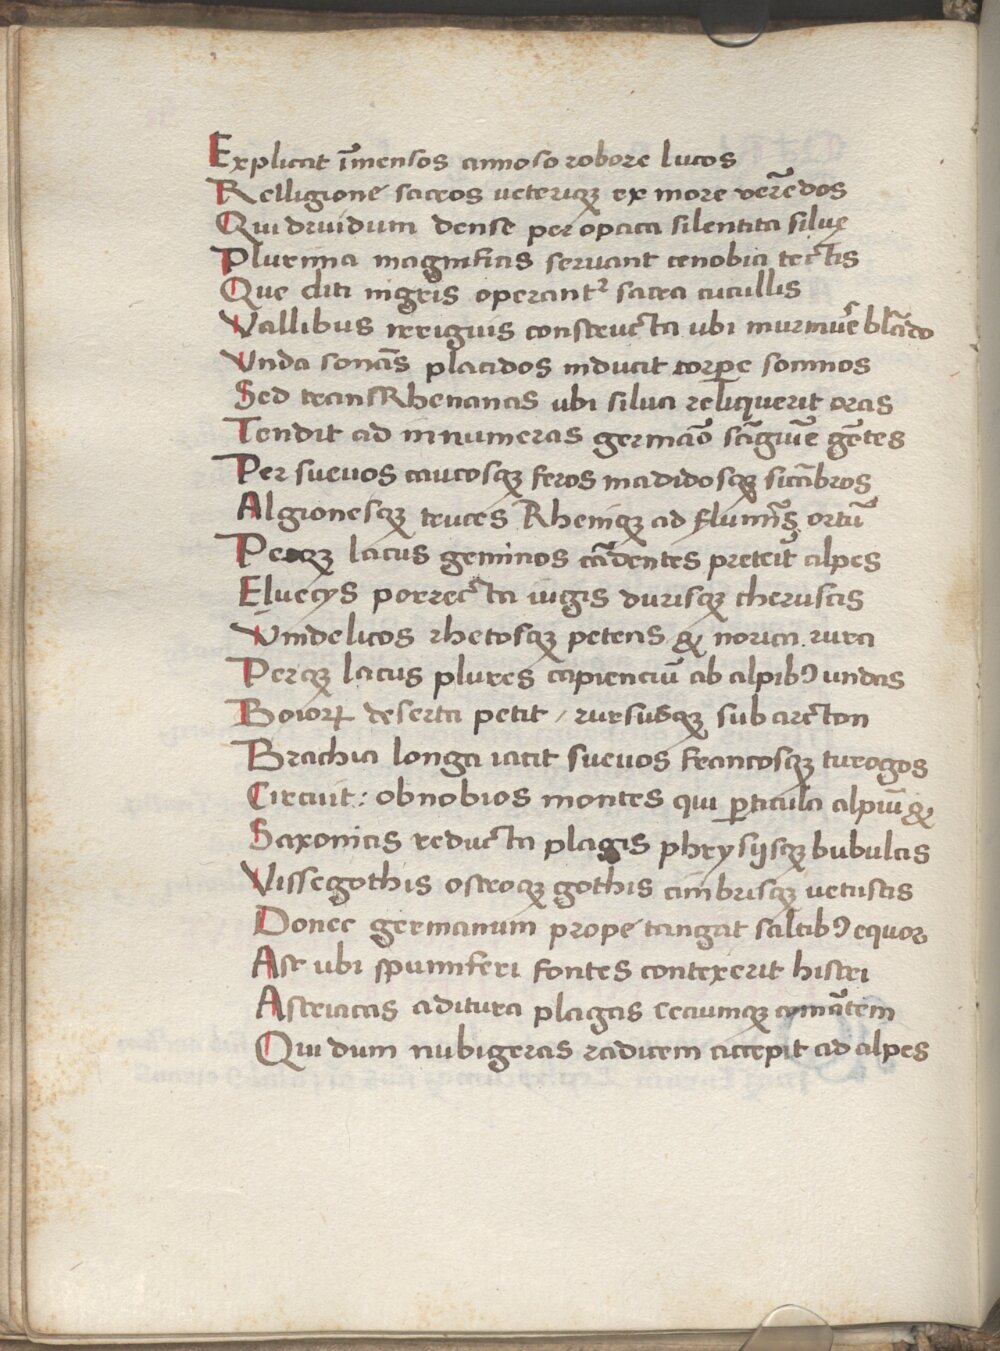 Explicat īmensos annoso robore lucos
Relligione sacros ueteriqꝫ ex more verēdos
Qui druidum dense per opaca silentita siluę
Plurima magnificis seruant cenobia tectis
Que diti nigris operantᷣ sacra cucullis
Vallibus irriguis constructa ubi murmuͤre blādo
Vnda sonās placidos inducit corꝑe somnos
Sed transRhenanas ubi silua reliquerit oras
Tendit ad innumeras germāo sāguīe gētes
Per sueuos caucosqꝫ feros madidosqꝫ sicābros
Algionesqꝫ truces Rhenqꝫ ad flumīs ortū
Perqꝫ lacus geminos cādentes preterit alpes
Eluecys porrecta iugis durisqꝫ cheruscis
Vindelicos rhetosqꝫ petens & norica rura
Perqꝫ lacus plures capienciū ab alpibꝰ undas
Boioꝝ deserta petit / rursusqꝫ sub arcton
Brachia longa iacit sueuos francosqꝫ turogos
Circuit: obnobios montes qui ꝑticula alpiū &
Saxonicis reducta plagis phrysijsqꝫ bubulcis
Vissegothis ostroqꝫ gothis cimbrisqꝫ uetustis
Donec germanum prope tangat saltibꝰ equor
Ast ubi spumiferi fontes contexerit histri
Astriacas aditura plagas ceciumqꝫ comātem
Qui dum nubigeras radicem accepit ad alpes